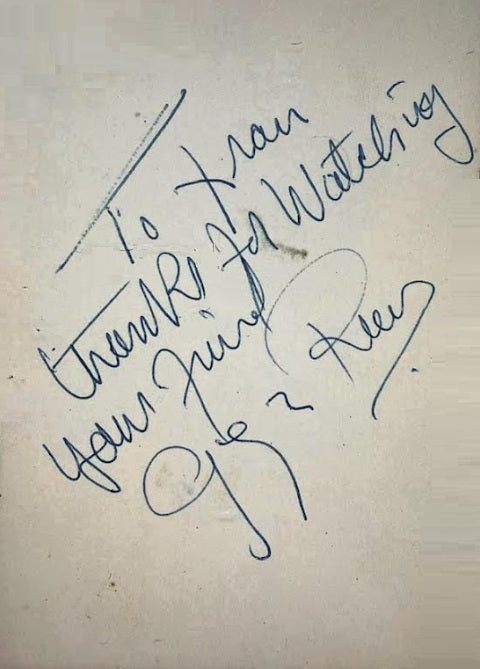 To Fran
thanks for Watching
your friend
George Reeves